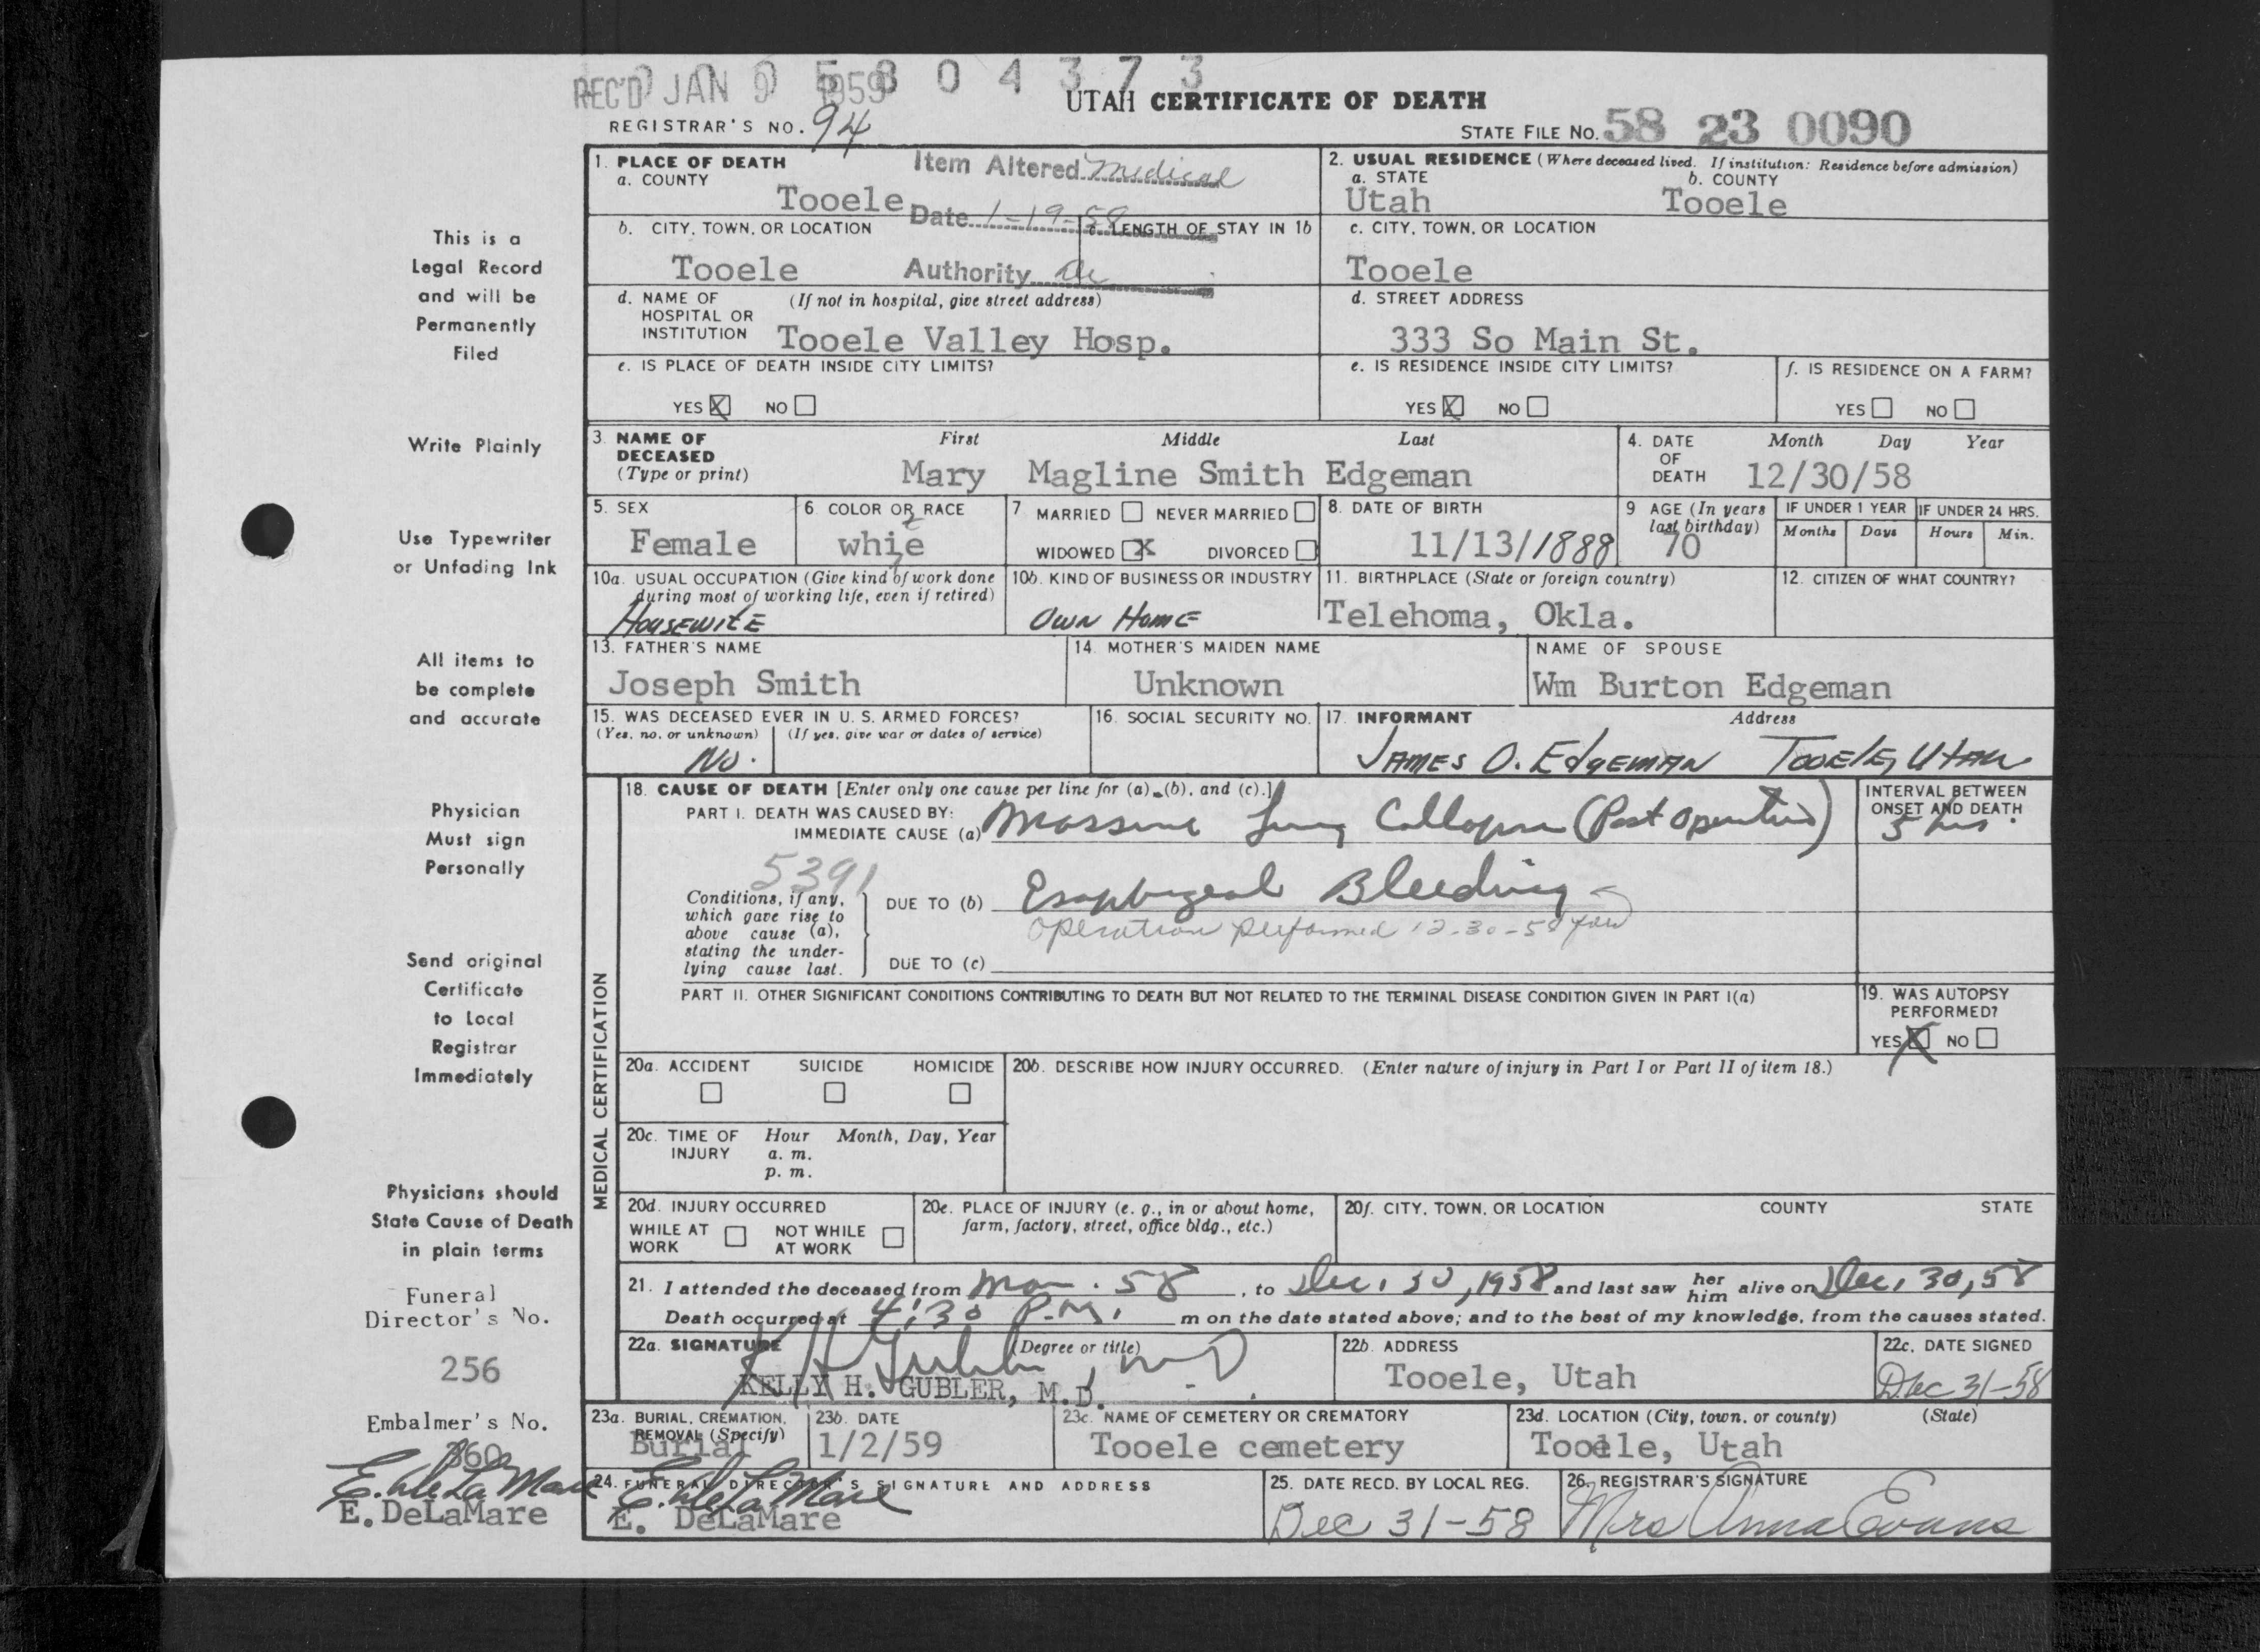 REC'D JAN 9 1959
5 8 0 4 3 7 3
UTAH CERTIFICATE OF DEATH
REGISTRAR'S NO. 94
STATE FILE NO. 58 23 0090
This is a
Legal Record
and will be
Permanently
Filed
Write Plainly
Use Typewriter
or Unfading Ink
All items to
be complete
and accurate
Physician
Must sign
Personally
Send original
Certificate
to Local
Registrar
Immediately
Physicians should
State Cause of Death
in plain terms
Funeral
Director's No.
256
Embalmer's No.
360
E. DeLaMare
E. DeLaMare
1. PLACE OF DEATH
a. COUNTY
Tooele
Item Altered Medical
Date 1-19-59
Authority
2. USUAL RESIDENCE (Where deceased lived. If institution: Residence before admission)
a. STATE b. COUNTY
Utah Tooele
b. CITY, TOWN, OR LOCATION
Tooele
c. LENGTH OF STAY IN 1b
c. CITY, TOWN, OR LOCATION
Tooele
d. NAME OF HOSPITAL OR INSTITUTION (If not in hospital, give street address)
Tooele Valley Hosp.
d. STREET ADDRESS
333 So Main St.
e. IS PLACE OF DEATH INSIDE CITY LIMITS?
YES X NO
e. IS RESIDENCE INSIDE CITY LIMITS?
YES X NO
f. IS RESIDENCE ON A FARM?
YES NO
3. NAME OF DECEASED (Type or print)
First Middle Last
Mary Magline Smith Edgeman
4. DATE OF DEATH
Month Day Year
12/30/58
5. SEX
Female
6. COLOR OR RACE
white
7. MARRIED NEVER MARRIED
WIDOWED X DIVORCED
8. DATE OF BIRTH
11/13/1888
9 AGE (In years last birthday)
70
IF UNDER 1 YEAR
Months Days
IF UNDER 24 HRS.
Hours Min.
10a. USUAL OCCUPATION (Give kind of work done during most of working life, even if retired)
HOUSEWIFE
10b. KIND OF BUSINESS OR INDUSTRY
OWN HOME
11. BIRTHPLACE (State or foreign country)
Telehoma, Okla.
12. CITIZEN OF WHAT COUNTRY?
13. FATHER'S NAME
Joseph Smith
14. MOTHER'S MAIDEN NAME
Unknown
NAME OF SPOUSE
Wm Burton Edgeman
15. WAS DECEASED EVER IN U. S. ARMED FORCES?
(Yes, no, or unknown) (If yes, give war or dates of service)
No.
16. SOCIAL SECURITY NO.
17. INFORMANT Address
JAMES O. EdgEMAN TOOELE, UTAH
MEDICAL CERTIFICATION
18. CAUSE OF DEATH [Enter only one cause per line for (a), (b), and (c).]
PART I. DEATH WAS CAUSED BY:
IMMEDIATE CAUSE (a) Massive Lung Collapse (Post Operative)
INTERVAL BETWEEN ONSET AND DEATH
5 hrs.
5391
Conditions, if any, which gave rise to above cause (a), stating the underlying cause last.
DUE TO (b) Esophageal Bleeding
Operation performed 12-30-58 for
DUE TO (c)
PART II. OTHER SIGNIFICANT CONDITIONS CONTRIBUTING TO DEATH BUT NOT RELATED TO THE TERMINAL DISEASE CONDITION GIVEN IN PART I(a)
19. WAS AUTOPSY PERFORMED?
YES X NO
20a. ACCIDENT SUICIDE HOMICIDE
20b. DESCRIBE HOW INJURY OCCURRED. (Enter nature of injury in Part I or Part II of item 18.)
20c. TIME OF INJURY Hour Month, Day, Year
a. m.
p. m.
20d. INJURY OCCURRED
WHILE AT WORK NOT WHILE AT WORK
20e. PLACE OF INJURY (e. g., in or about home, farm, factory, street, office bldg., etc.)
20f. CITY, TOWN, OR LOCATION COUNTY STATE
21. I attended the deceased from Mar. 58, to Dec. 30, 1958 and last saw her him alive on Dec. 30, 58
Death occurred at 4:30 P.M. m on the date stated above; and to the best of my knowledge, from the causes stated.
22a. SIGNATURE (Degree or title)
K H Gubler, M D
KELLY H. GUBLER, M.D.
22b. ADDRESS
Tooele, Utah
22c. DATE SIGNED
Dec 31-58
23a. BURIAL, CREMATION, REMOVAL (Specify)
Burial
23b. DATE
1/2/59
23c. NAME OF CEMETERY OR CREMATORY
Tooele cemetery
23d. LOCATION (City, town, or county) (State)
Tooele, Utah
24. FUNERAL DIRECTOR'S SIGNATURE AND ADDRESS
E. DeLaMare
E. DeLaMare
25. DATE RECD. BY LOCAL REG.
Dec 31-58
26. REGISTRAR'S SIGNATURE
Mrs Anna Evans